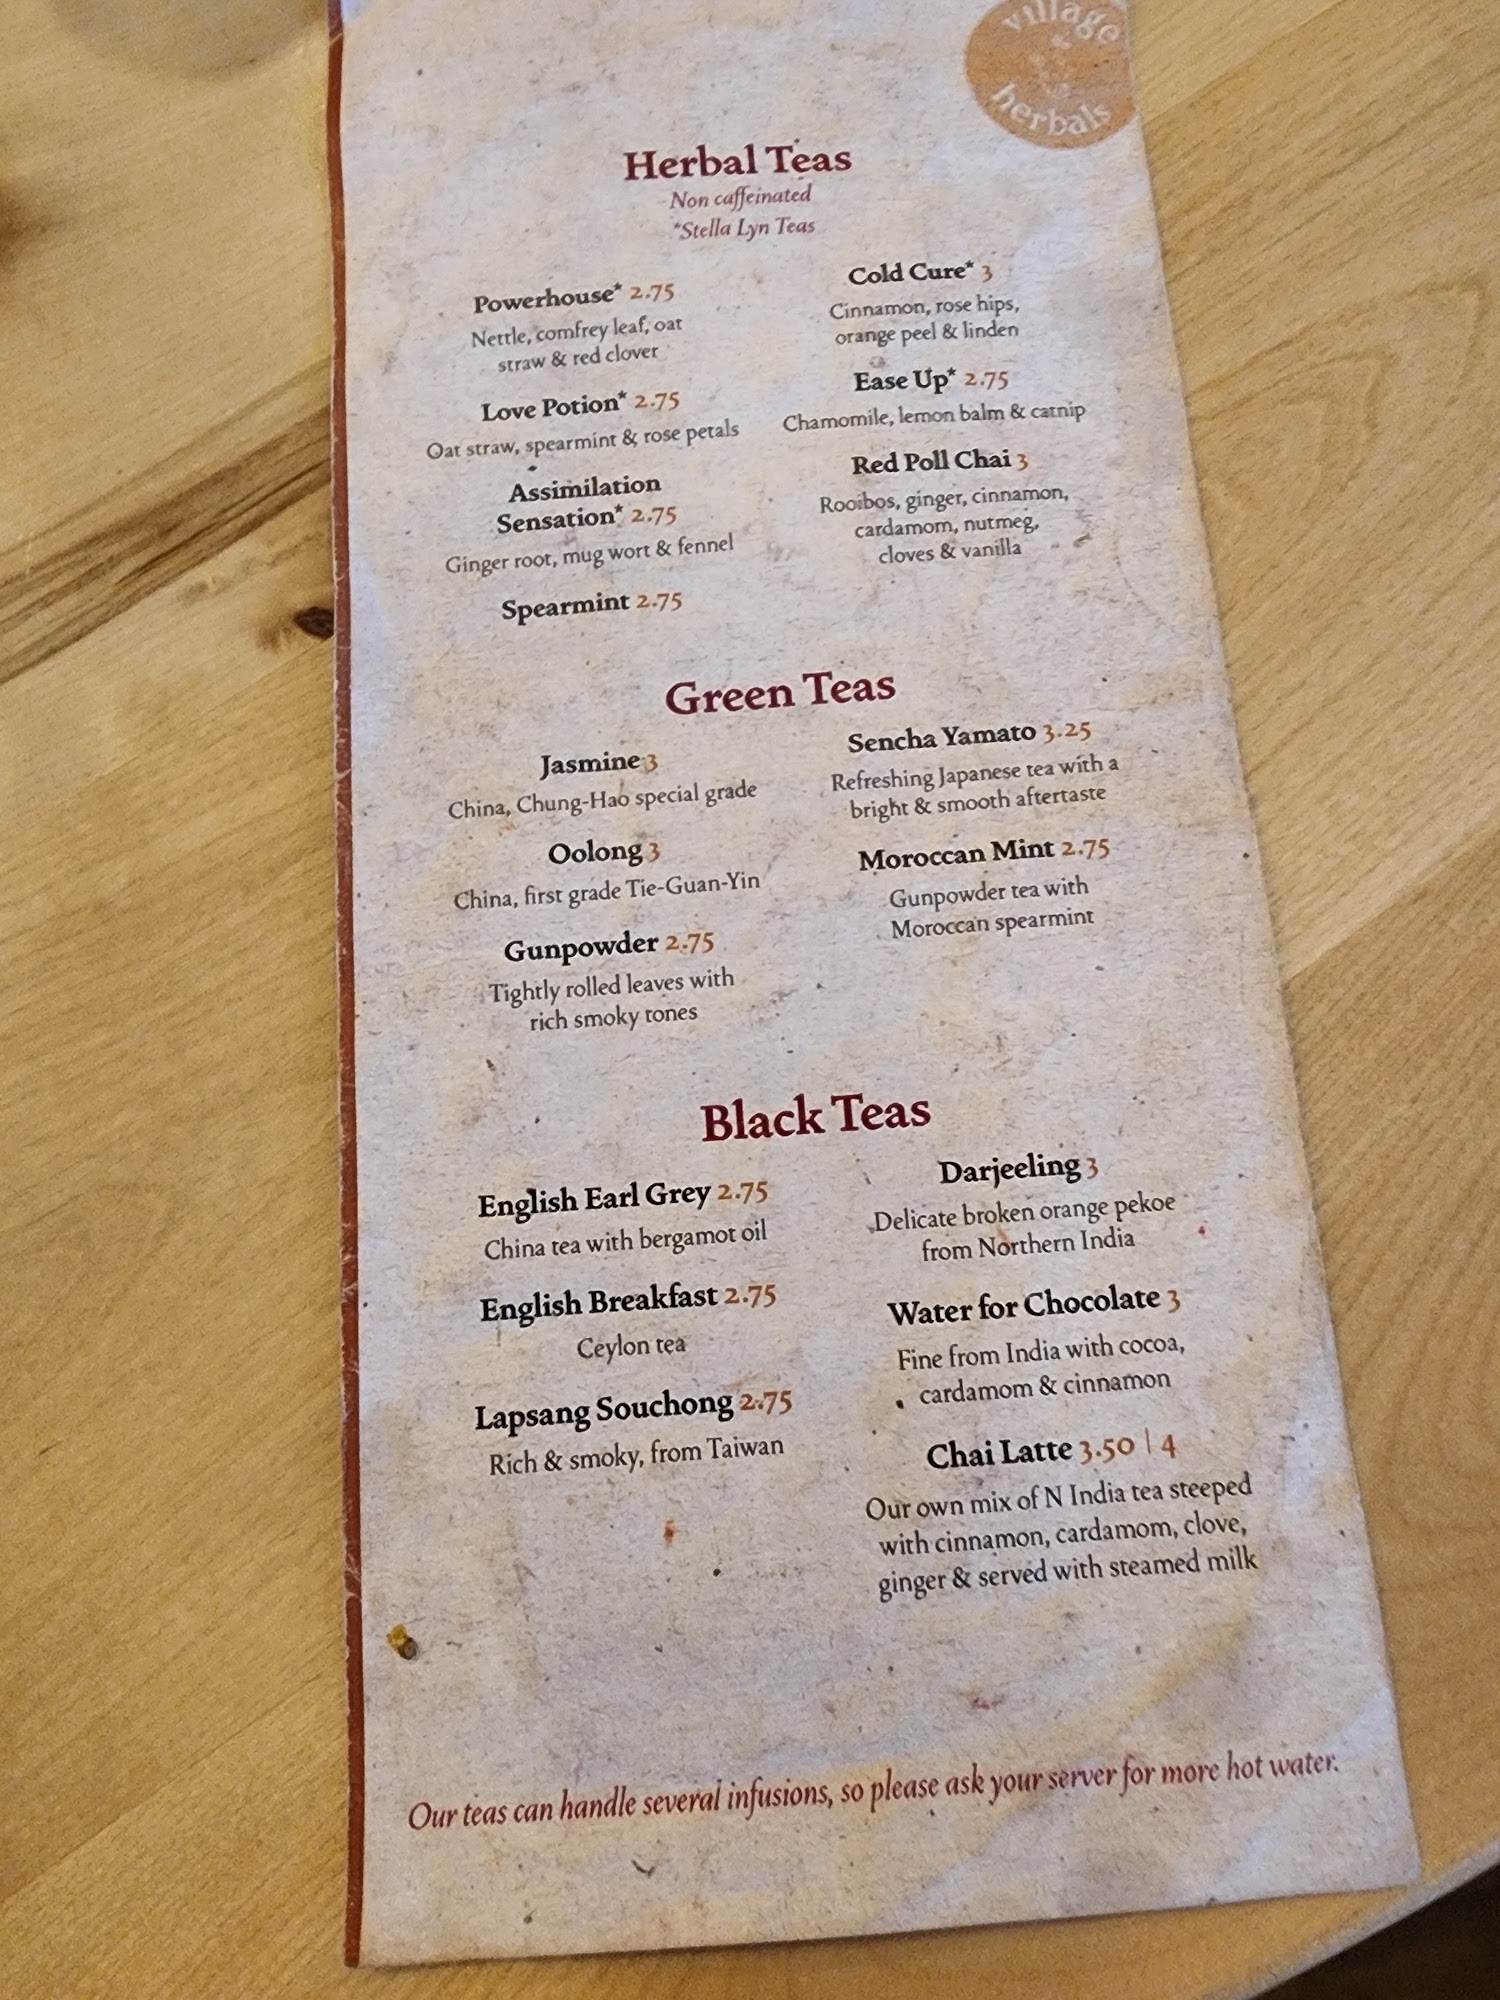 village
herbals
Herbal Teas
Non caffeinated
*Stella Lyn Teas
Powerhouse* 2.75
Nettle, comfrey leaf, oat
straw & red clover
Love Potion* 2.75
Oat straw, spearmint & rose petals
Assimilation
Sensation* 2.75
Ginger root, mug wort & fennel
Spearmint 2.75
Cold Cure* 3
Cinnamon, rose hips,
orange peel & linden
Ease Up* 2.75
Chamomile, lemon balm & catnip
Red Poll Chai 3
Rooibos, ginger, cinnamon,
cardamom, nutmeg,
cloves & vanilla
Green Teas
Jasmine 3
China, Chung-Hao special grade
Oolong 3
China, first grade Tie-Guan-Yin
Gunpowder 2.75
Tightly rolled leaves with
rich smoky tones
Sencha Yamato 3.25
Refreshing Japanese tea with a
bright & smooth aftertaste
Moroccan Mint 2.75
Gunpowder tea with
Moroccan spearmint
Black Teas
English Earl Grey 2.75
China tea with bergamot oil
English Breakfast 2.75
Ceylon tea
Lapsang Souchong 2.75
Rich & smoky, from Taiwan
Darjeeling 3
Delicate broken orange pekoe
from Northern India
Water for Chocolate 3
Fine from India with cocoa,
cardamom & cinnamon
Chai Latte 3.50 | 4
Our own mix of N India tea steeped
with cinnamon, cardamom, clove,
ginger & served with steamed milk
Our teas can handle several infusions, so please ask your server for more hot water.